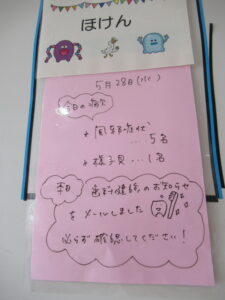 ほけん
5月28日(水)
今日の病欠
＊風邪症状
…5名
＊様子見…1名
本日 歯科健診のお知らせ
をメールしました
必ず確認してください！